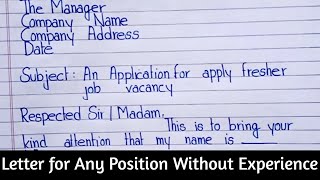 The Manager
Company Name
Company Address
Date
Subject: An Application for apply fresher
job vacancy
Respected Sir / Madam,
This is to bring your
kind attention that my name is ____
Letter for Any Position Without Experience